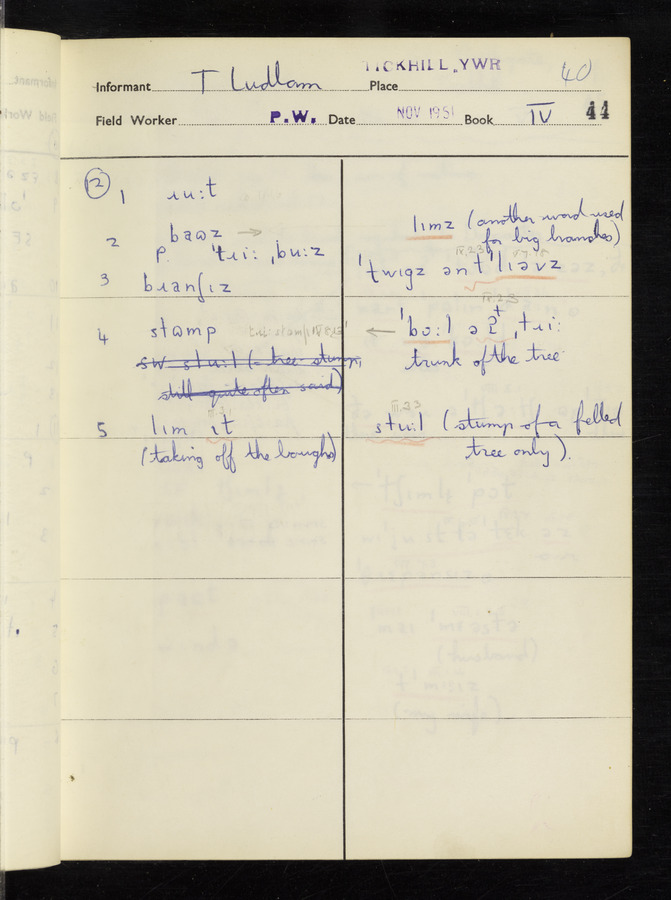 TICKHILL, YWR 40
Informant T Ludlam Place
Field Worker P.W. Date NOV 1951 Book IV 44
12
1 ɹu:t
2 baʊz →
p. ˈtɹi: ˌbu:z
lɪmz (another word used
for big branches)
3 bɹanʃɪz
ˈtwɪgz ən tˈlɪəvz
4 stʊmp
← ˈbo:l ə ðt ˌtɹi:
trunk of the tree
sw stu:l (= tree stump,
still quite often said)
5 lɪm ɪt
(taking off the boughs)
III.23
stu:l (stump of a felled
tree only).